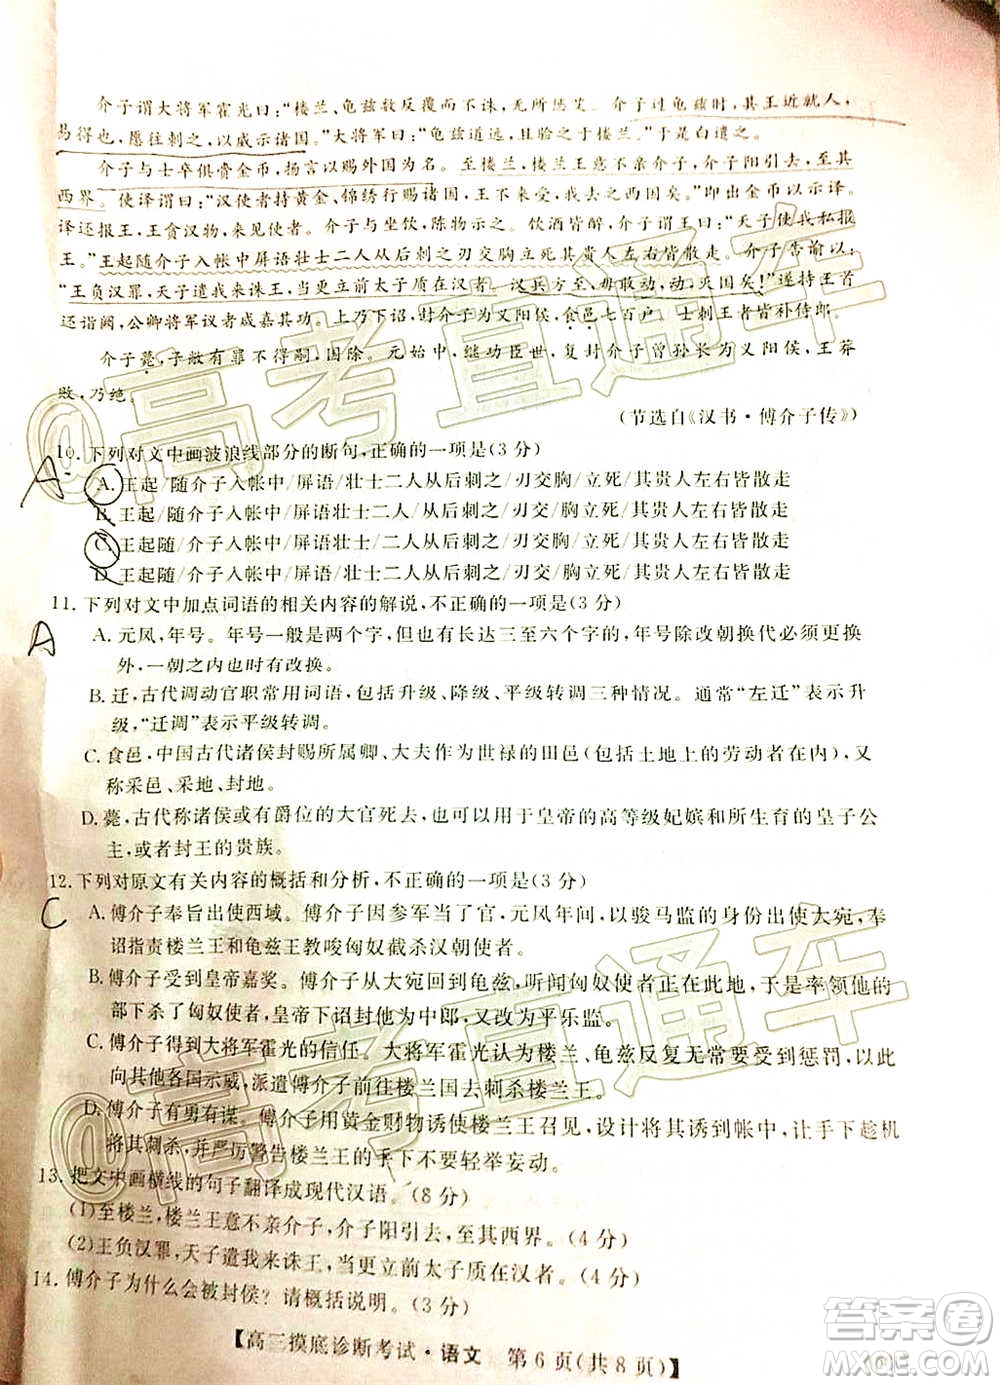 介子谓大将军霍光曰:“楼兰、龟兹数反覆而不诛,无所惩艾。介子过龟兹时,其王近就人,
易得也,愿往刺之,以威示诸国。”大将军曰:“龟兹道远,且验之于楼兰。”于是白遣之。
介子与士卒俱赍金币,扬言以赐外国为名。至楼兰,楼兰王意不亲介子,介子阳引去,至其
西界。使译谓曰:“汉使者持黄金、锦绣行赐诸国,王不来受,我去之西国矣。”即出金币以示译。
译还报王,王贪汉物,来见使者。介子与坐饮,陈物示之。饮酒皆醉,介子谓王曰:“天子使我私报
王。”王起随介子入帐中屏语壮士二人从后刺之刃交胸立死其贵人左右皆散走。介子告谕以:
“王负汉罪,天子遣我来诛王,当更立前太子质在汉者。汉兵方至,毋敢动,动,灭国矣!”遂持王首
还诣阙,公卿将军议者咸嘉其功。上乃下诏,封介子为义阳侯,食邑七百户。士刺王者皆补侍郎。
介子薨,子敞有罪不得嗣,国除。元始中,继功臣世,复封介子曾孙长为义阳侯,王莽
败,乃绝。
(节选自《汉书·傅介子传》)
10. 下列对文中画波浪线部分的断句,正确的一项是(3 分)
A
A. 王起/随介子入帐中/屏语/壮士二人从后刺之/刃交胸/立死/其贵人左右皆散走
B. 王起/随介子入帐中/屏语壮士二人/从后刺之/刃交/胸立死/其贵人左右皆散走
C. 王起随/介子入帐中/屏语/壮士二人从后刺之/刃交胸/立死/其贵人左右皆散走
D. 王起随/介子入帐中/屏语壮士二人/从后刺之/刃交/胸立死/其贵人左右皆散走
11. 下列对文中加点词语的相关内容的解说,不正确的一项是(3 分)
A
A. 元风,年号。年号一般是两个字,但也有长达三至六个字的,年号除改朝换代必须更换
外,一朝之内也时有改换。
B. 迁,古代调动官职常用词语,包括升级、降级、平级转调三种情况。通常“左迁”表示升
级,“迁调”表示平级转调。
C. 食邑,中国古代诸侯封赐所属卿、大夫作为世禄的田邑(包括土地上的劳动者在内),又
称采邑、采地、封地。
D. 薨,古代称诸侯或有爵位的大官死去,也可以用于皇帝的高等级妃嫔和所生育的皇子公
主,或者封王的贵族。
12. 下列对原文有关内容的概括和分析,不正确的一项是(3 分)
C
A. 傅介子奉旨出使西域。傅介子因参军当了官,元风年间,以骏马监的身份出使大宛,奉
诏指责楼兰王和龟兹王教唆匈奴截杀汉朝使者。
B. 傅介子受到皇帝嘉奖。傅介子从大宛回到龟兹,听闻匈奴使者在这里,于是率领他的
部下杀了匈奴使者,皇帝下诏封他为中郎,又改为平乐监。
C. 傅介子得到大将军霍光的信任。大将军霍光认为楼兰、龟兹反复无常要受到惩罚,以此
向其他各国示威,派遣傅介子前往楼兰国去刺杀楼兰王。
D. 傅介子有勇有谋。傅介子用黄金财物诱使楼兰王召见,设计将其骗到帐中,让手下趁机
将其刺杀,并严厉警告楼兰王的手下不要轻举妄动。
13. 把文中画横线的句子翻译成现代汉语。(8 分)
(1)至楼兰,楼兰王意不亲介子,介子阳引去,至其西界。(4 分)
(2)王负汉罪,天子遣我来诛王,当更立前太子质在汉者。(4 分)
14. 傅介子为什么会被封侯?请概括说明。(3 分)
【高三摸底诊断考试·语文 第 6 页(共 8 页)】
@高考直通车
@高考直通车
答案圈
MXQE.COM